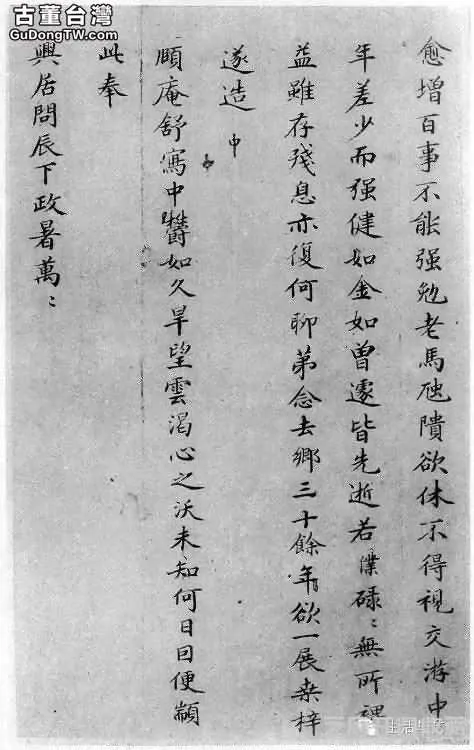 古董台灣
GuDongTW.com
愈增百事不能强勉老馬虺隤欲休不得視交游中
年差少而强健如金如曾遽皆先逝若僕碌〻無所裨
益雖存殘息亦復何聊第念去鄉三十餘年欲一展桒梓
遂造
中
頥庵舒寫中欝如久旱望雲渴心之沃未知何日回便顓
此奉
興居問辰下政暑萬〻
生活